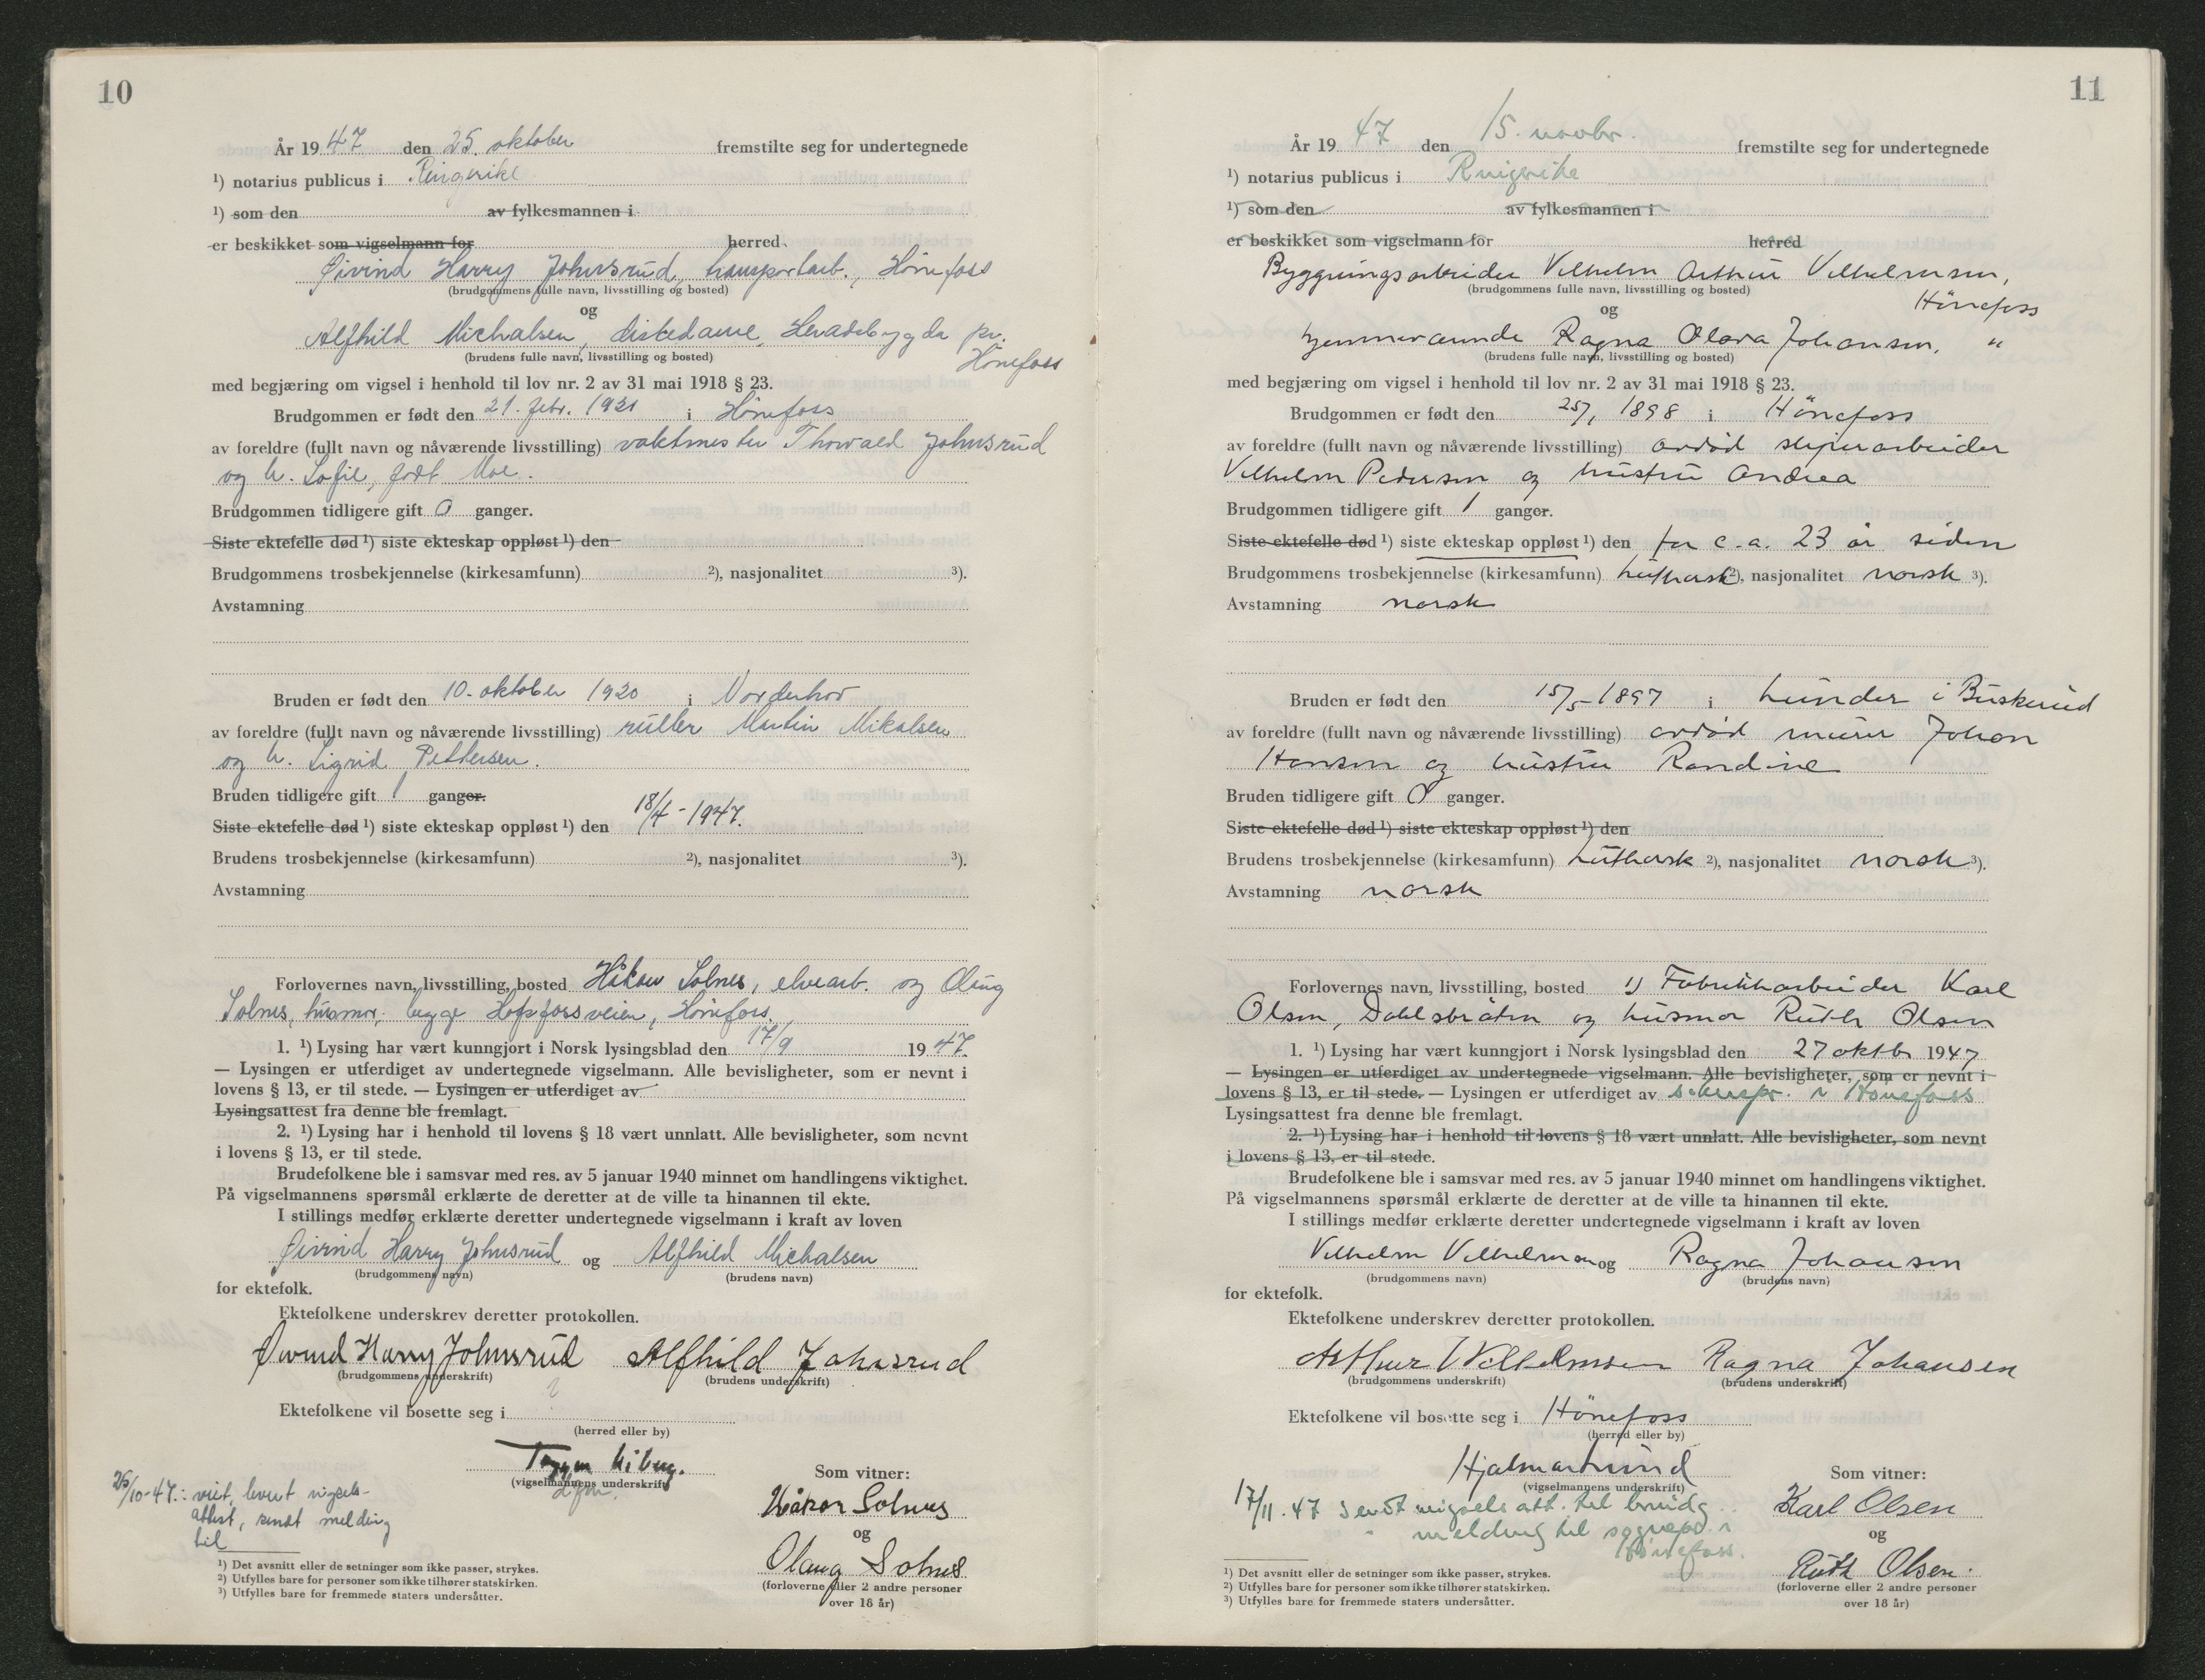 10
År 1947 den 25. oktober fremstilte seg for undertegnede
¹) notarius publicus i Ringerike
¹) som den av fylkesmannen i
er beskikket som vigselmann for herred
Øivind Harry Johnsrud, transportarb., Hønefoss
(brudgommens fulle navn, livsstilling og bosted)
og
Alfhild Michalsen, distedame, Heradsbygda pr.
Hønefoss
(brudens fulle navn, livsstilling og bosted)
med begjæring om vigsel i henhold til lov nr. 2 av 31 mai 1918 § 23.
Brudgommen er født den 21. febr. 1921 i Hønefoss
av foreldre (fullt navn og nåværende livsstilling) vaktmester Thorvald Johnsrud
og h. Sofie, født Moe.
Brudgommen tidligere gift 0 ganger.
Siste ektefelle død ¹) siste ekteskap oppløst ¹) den
Brudgommens trosbekjennelse (kirkesamfunn) ²), nasjonalitet ³).
Avstamning
Bruden er født den 10. oktober 1920 i Norderhov
av foreldre (fullt navn og nåværende livsstilling) ruller Martin Mikalsen
og h. Sigrid Pettersen.
Bruden tidligere gift 1 ganger.
Siste ektefelle død ¹) siste ekteskap oppløst ¹) den 18/4-1947.
Brudens trosbekjennelse (kirkesamfunn) ²), nasjonalitet ³).
Avstamning
Forlovernes navn, livsstilling, bosted Håkon Solnes, elvearb. og Olaug
Solnes, husmor, begge Hofsfossveien, Hønefoss.
1. ¹) Lysing har vært kunngjort i Norsk lysingsblad den 17/9 1947.
— Lysingen er utferdiget av undertegnede vigselmann. Alle bevisligheter, som er nevnt i
lovens § 13, er til stede. — Lysingen er utferdiget av
Lysingsattest fra denne ble fremlagt.
2. ¹) Lysing har i henhold til lovens § 18 vært unnlatt. Alle bevisligheter, som nevnt
i lovens § 13, er til stede.
Brudefolkene ble i samsvar med res. av 5 januar 1940 minnet om handlingens viktighet.
På vigselmannens spørsmål erklærte de deretter at de ville ta hinannen til ekte.
I stillings medfør erklærte deretter undertegnede vigselmann i kraft av loven
Øivind Harry Johnsrud og Alfhild Michalsen
(brudgommens navn) (brudens navn)
for ektefolk.
Ektefolkene underskrev deretter protokollen.
Øivind Harry Johnsrud Alfhild Johnsrud
(brudgommens underskrift) (brudens underskrift)
Ektefolkene vil bosette seg i
(herred eller by)
(vigselmannens underskrift)
Som vitner:
25/10-47.: viet, levert vigsels-
attest, sendt melding
til
Håkon Solnes
og
Olaug Solnes
(forloverne eller 2 andre personer
over 18 år)
¹) Det avsnitt eller de setninger som ikke passer, strykes.
²) Utfylles bare for personer som ikke tilhører statskirken.
³) Utfylles bare for fremmede staters undersåtter.
11
År 1947 den 15. novbr. fremstilte seg for undertegnede
¹) notarius publicus i Ringerike
¹) som den av fylkesmannen i
er beskikket som vigselmann for herred
Byggningsarbeider Vilhelm Arthur Vilhelmsen,
Hönefoss
(brudgommens fulle navn, livsstilling og bosted)
og
hjemmeværende Ragna Olava Johansen, "
(brudens fulle navn, livsstilling og bosted)
med begjæring om vigsel i henhold til lov nr. 2 av 31 mai 1918 § 23.
Brudgommen er født den 1898 i Hönefoss
av foreldre (fullt navn og nåværende livsstilling) avdöd sliperarbeider
Vilhelm Pedersen og hustru Andrea
Brudgommen tidligere gift 1 ganger.
Siste ektefelle død ¹) siste ekteskap oppløst ¹) den for c.a. 23 år siden
Brudgommens trosbekjennelse (kirkesamfunn) luthersk ²), nasjonalitet norsk ³).
Avstamning norsk
Bruden er født den 15/5-1897 i Lunder i Buskerud
av foreldre (fullt navn og nåværende livsstilling) avdöd murer Johan
Hansen og hustru Randine
Bruden tidligere gift 0 ganger.
Siste ektefelle død ¹) siste ekteskap oppløst ¹) den
Brudens trosbekjennelse (kirkesamfunn) luthersk ²), nasjonalitet norsk ³).
Avstamning norsk
Forlovernes navn, livsstilling, bosted 1) Fabrikkarbeider Karl
Olsen, Dahlsbråten og husmor Ruth Olsen
1. ¹) Lysing har vært kunngjort i Norsk lysingsblad den 27 oktbr 1947
— Lysingen er utferdiget av undertegnede vigselmann. Alle bevisligheter, som er nevnt i
lovens § 13, er til stede. — Lysingen er utferdiget av sognepr. i Hönefoss
Lysingsattest fra denne ble fremlagt.
2. ¹) Lysing har i henhold til lovens § 18 vært unnlatt. Alle bevisligheter, som nevnt
i lovens § 13, er til stede.
Brudefolkene ble i samsvar med res. av 5 januar 1940 minnet om handlingens viktighet.
På vigselmannens spørsmål erklærte de deretter at de ville ta hinannen til ekte.
I stillings medfør erklærte deretter undertegnede vigselmann i kraft av loven
Vilhelm Vilhelmsen og Ragna Johansen
(brudgommens navn) (brudens navn)
for ektefolk.
Ektefolkene underskrev deretter protokollen.
Arthur Vilhelmsen Ragna Johansen
(brudgommens underskrift) (brudens underskrift)
Ektefolkene vil bosette seg i Hönefoss
(herred eller by)
Hjalmar Lund
(vigselmannens underskrift)
Som vitner:
17/11.47 sendt vigsels att. til brudg.
" melding til sognepr. i
Hönefoss.
Karl Olsen
og
Ruth Olsen.
(forloverne eller 2 andre personer
over 18 år)
¹) Det avsnitt eller de setninger som ikke passer, strykes.
²) Utfylles bare for personer som ikke tilhører statskirken.
³) Utfylles bare for fremmede staters undersåtter.